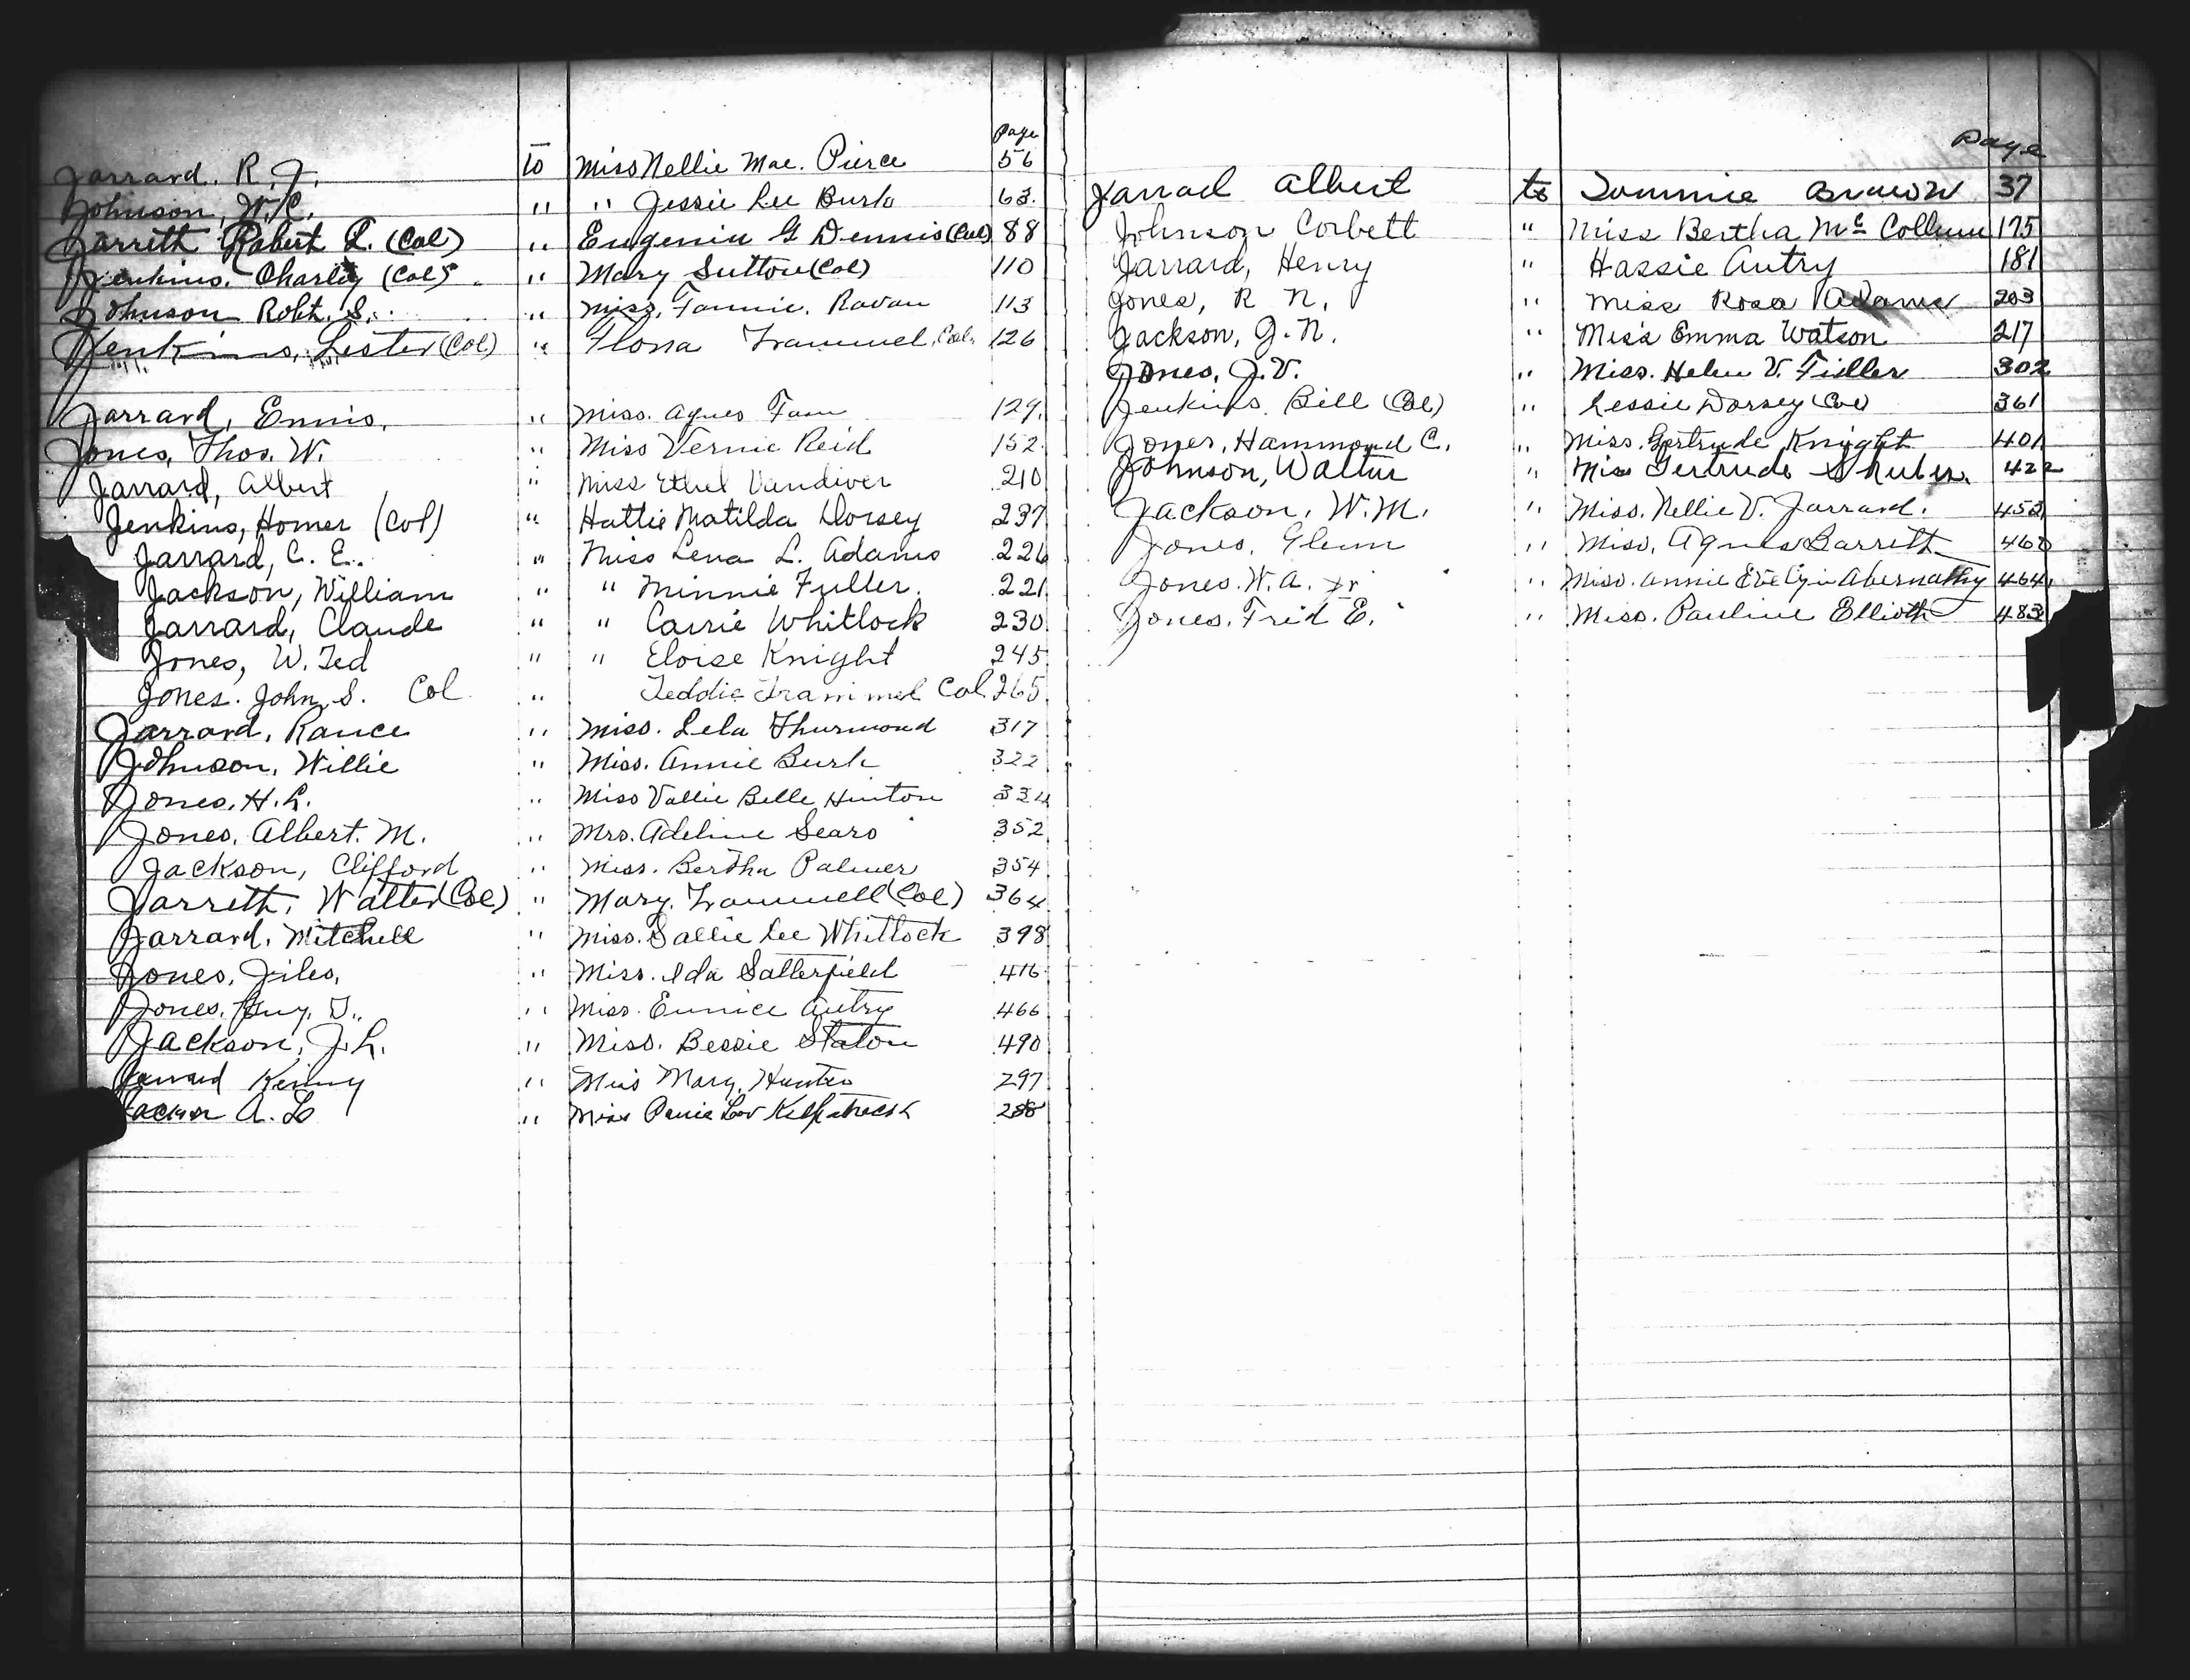 Page
Jarrard, R. J. to Miss Nellie Mae. Pierce 56
Johnson, W.C. " " Jessie Lee Burk 63.
Jarreth Robert L. (Col) " Eugenia G Dennis (Col) 88
Jenkins, Charley (Col) " Mary Sutton (Col) 110
Johnson Robt. S. " Miss. Fannie. Ravan 113
Jenkins, Lester (Col) " Flona Trammel, Col. 126
Jarrard, Ennis, " Miss. Agnes 129.
Jones, Thos. W. " Miss Vernie Reid 152
Jarrard, Albert " Miss Ethel Vandiver 210
Jenkins, Homer (Col) " Hattie Matilda Dorsey 237
Jarrard, C. E. " Miss Lena L. Adams 226
Jackson, William " " Minnie Fuller. 221
Jarrard, Claude " " Carrie Whitlock 230
Jones, W. Ted " " Eloise Knight 245
Jones. John S. Col " Teddie Trammel Col. 265
Jarrard, Rance " Miss. Lela Thurmond 317
Johnson, Willie " Miss. Annie Burk 322
Jones, H. L. " Miss Vallie Belle Hinton 334
Jones, Albert. M. " Mrs. Adeline Sears 352
Jackson, Clifford " Miss. Bertha Palmer 354
Jarreth, Walter (Col) " Mary. Trammell (Col) 364
Jarrard, Mitchell " Miss. Sallie Lee Whitlock 398
Jones, Jiles, " Miss. Ida Satterfield 416
Jones, Guy. D., " Miss. Eunice Autry 466
Jackson, J. L. " Miss. Bessie Staton 490
Jarrard Kenny " Miss Mary, Hunter 297
A. L " Miss Lov Kilpatrick 288
Page
Jarrad Albert to Tommie Brown 37
Johnson Corbett " Miss Bertha Mc Collum 175
Jarrard, Henry " Hassie Autry 181
Jones, R N, " Miss Rosa Adams 203
Jackson, G. N. " Miss Emma Watson 217
Jones, J. V. " Miss. Helen V. Fuller 302
Jenkins, Bill (Col) " Lessie Dorsey (Col) 361
Jones, Hammond C. " Miss. Gertrude Knight 401
Johnson, Walter " Miss Gertrude 422
Jackson, W. M. " Miss. Nellie V. Jarrard. 453
Jones, Glenn " Miss, Agnes Barrett 460
Jones. W. A. Jr " Miss. Annie Evelyn Abernathy 464
Jones. Fred E. " Miss. Pauline Elliott 483